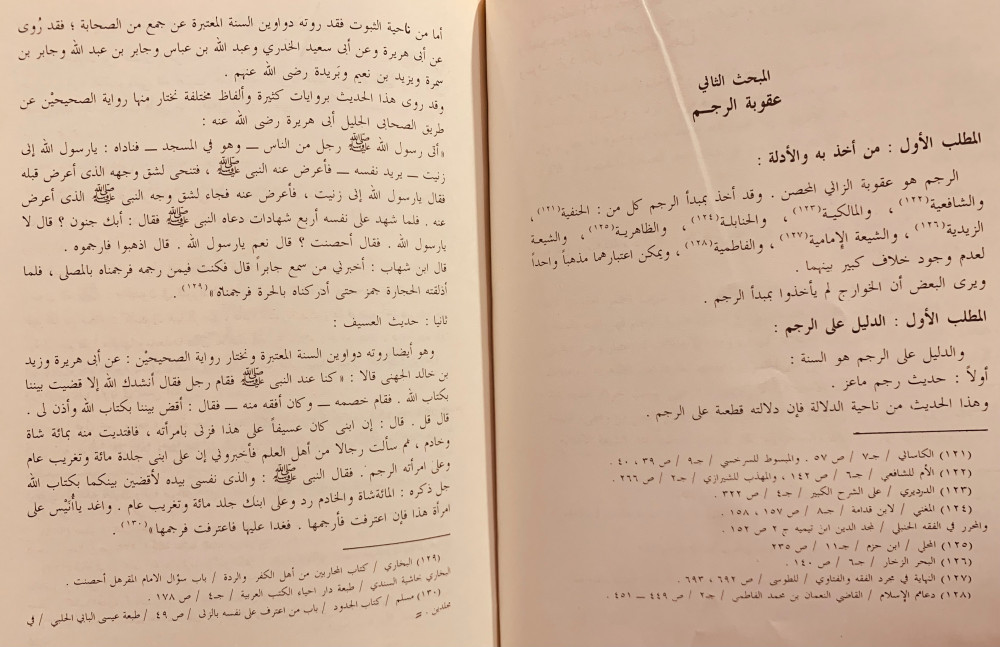 المبحث الثاني
عقوبة الرجــم
المطلب الأول : من أخذ به والأدلة :
الرجم هو عقوبة الزاني المحصن . وقد أخذ بمبدأ الرجم كل من : الحنفية(١٢١) ،
والشافعية(١٢٢) ، والمالكيـة(١٢٣) ، والحنابلـة(١٢٤) ، والظاهريـة(١٢٥) ، والشيعـة
الزيدية(١٢٦) ، والشيعة الإمامية(١٢٧) ، والفاطمية(١٢٨) ، ويمكن اعتبارهما مذهباً واحداً
لعدم وجود خلاف كبير بينهما .
ويرى البعض أن الخوارج لم يأخذوا بمبدأ الرجم .
المطلب الأول : الدليل على الرجم :
والدليل على الرجم هو السنة :
أولاً : حديث رجم ماعز .
وهذا الحديث من ناحية الدلالة فإن دلالته قطعة على الرجم .
(١٢١) الكاساني / جـ٧ / ص ٥٧ . والمبسوط للسرخسي / جـ٩ / ص ٣٩ ، ٤٠ .
(١٢٢) الأم للشافعي / جـ٦ / ص ١٤٢ ، والمهذب للشيرازي / جـ٢ / ص ٢٦٦ .
(١٢٣) الدرديري / على الشرح الكبير / جـ٤ / ص ٣٢٢ .
(١٢٤) المغني / لابن قدامة / جـ٨ / ص ١٥٧ ، ١٥٨ .
والمحرر في الفقه الحنبلي / لمجد الدين ابن تيميه جـ ٢ ص ١٥٢ .
(١٢٥) المحلي / ابن حزم / جـ١١ / ص ٢٣٥
(١٢٦) البحر الزخار / جـ٦ / ص ١٤٠ .
(١٢٧) النهاية في مجرد الفقه والفتاوي / للطوسي / ص ٦٩٢ ، ٦٩٣ .
(١٢٨) دعائم الإسلام / القاضي النعمان بن محمد الفاطمي / جـ٢ / ص ٤٤٩ ــ ٤٥١ .
أما من ناحية الثبوت فقد روته دواوين السنة المعتبرة عن جمع من الصحابة ؛ فقد رُوى
عن أبى هريرة وعن أبى سعيد الخدري وعبد الله بن عباس وجابر بن عبد الله وجابر بن
سمرة ويزيد بن نعيم وبَريدة رضى الله عنهم .
وقد روى هذا الحديث بروايات كثيرة وألفاظ مختلفة نختار منها رواية الصحيحيْن عن
طريق الصحابى الجليل أبى هريرة رضى الله عنه :
«أتى رسول الله ﷺ رجل من الناس ــ وهو في المسجد ــ فناداه : يارسول الله إلى
زنيت ــ يريد نفسه ــ فأعرض عنه النبى ﷺ ، فتنحى لشق وجهه الذى أعرض قبله
فقال يارسول الله إلى زنيت ، فأعرض عنه فجاء لشق وجه النبى ﷺ الذى أعرض
عنه . فلما شهد على نفسه أربع شهادات دعاه النبى ﷺ فقال : أبك جنون ؟ قال لا
يارسول الله . فقال أحصنت ؟ قال نعم يارسول الله . قال اذهبوا فارجموه .
قال ابن شهاب : أخبرني من سمع جابراً قال فكنت فيمن رجمه فرجمناه بالمصلى ، فلما
أذلقته الحجارة جمز حتى أدركناه بالحرة فرجمناه»(١٢٩) .
ثانيا : حديث العسيف :
وهو أيضا روته دواوين السنة المعتبرة ونختار رواية الصحيحيْن : عن أبى هريرة وزيد
بن خالد الجهنى قالا : «كنا عند النبى ﷺ فقام رجل فقال أنشدك الله إلا قضيت بيننا
بكتاب الله . فقام خصمه ــ وكان أفقه منه ــ فقال : أقض بيننا بكتاب الله وأذن لى .
قال قل . قال : إن ابنى كان عسيفاً على هذا فزنى بامرأته ، فافتديت منه بمائة شاة
وخادم ، ثم سألت رجالا من أهل العلم فأخبروني إن على ابنى جلدة مائة وتغريب عام
وعلى امرأته الرجم . فقال النبى ﷺ : والذى نفسى بيده لأقضين بينكما بكتاب الله
جل ذكره : المائةشاة والخادم رد وعلى ابنك جلد مائة وتغريب عام . واغد ياأُنَيْس على
امرأة هذا فإن اعترفت فأرجمها . فغدا عليها فاعترفت فرجمها»(١٣٠) .
(١٢٩) البخاري / كتاب المحاربين من أهل الكفر والردة / باب سؤال الامام المقرهل أحصنت .
البخاري حاشية السندي / طبعة دار احياء الكتب العربية / جـ٤ / ص ١٧٨ .
(١٣٠) مسلم / كتاب الحدود / باب من اعترف على نفسه بالزنى / ص ٤٩ / طبعة عيسى البابي الحلبي / في
مجلدين . =